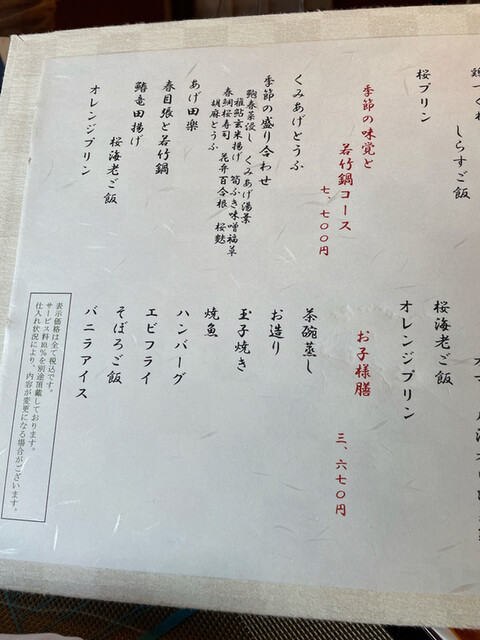 鶏つくね
しらすご飯
桜プリン
季節の味覚と
若竹鍋コース
七、七〇〇円
くみあげとうふ
季節の盛り合わせ
鮑春菜浸し くみあげ湯葉
稚鮎玄米揚げ 筍ふき味噌福草
春鯛桜寿司 花弁百合根 桜麩
胡麻とうふ
あげ田楽
春目張と若竹鍋
鰆竜田揚げ
桜海老ご飯
オレンジプリン
桜海老ご飯
オレンジプリン
お子様膳
三、六七〇円
茶碗蒸し
お造り
玉子焼き
焼魚
ハンバーグ
エビフライ
そぼろご飯
バニラアイス
表示価格は全て税込です。
サービス料10%を別途頂戴しております。
仕入れ状況により、内容が変更になる場合がございます。